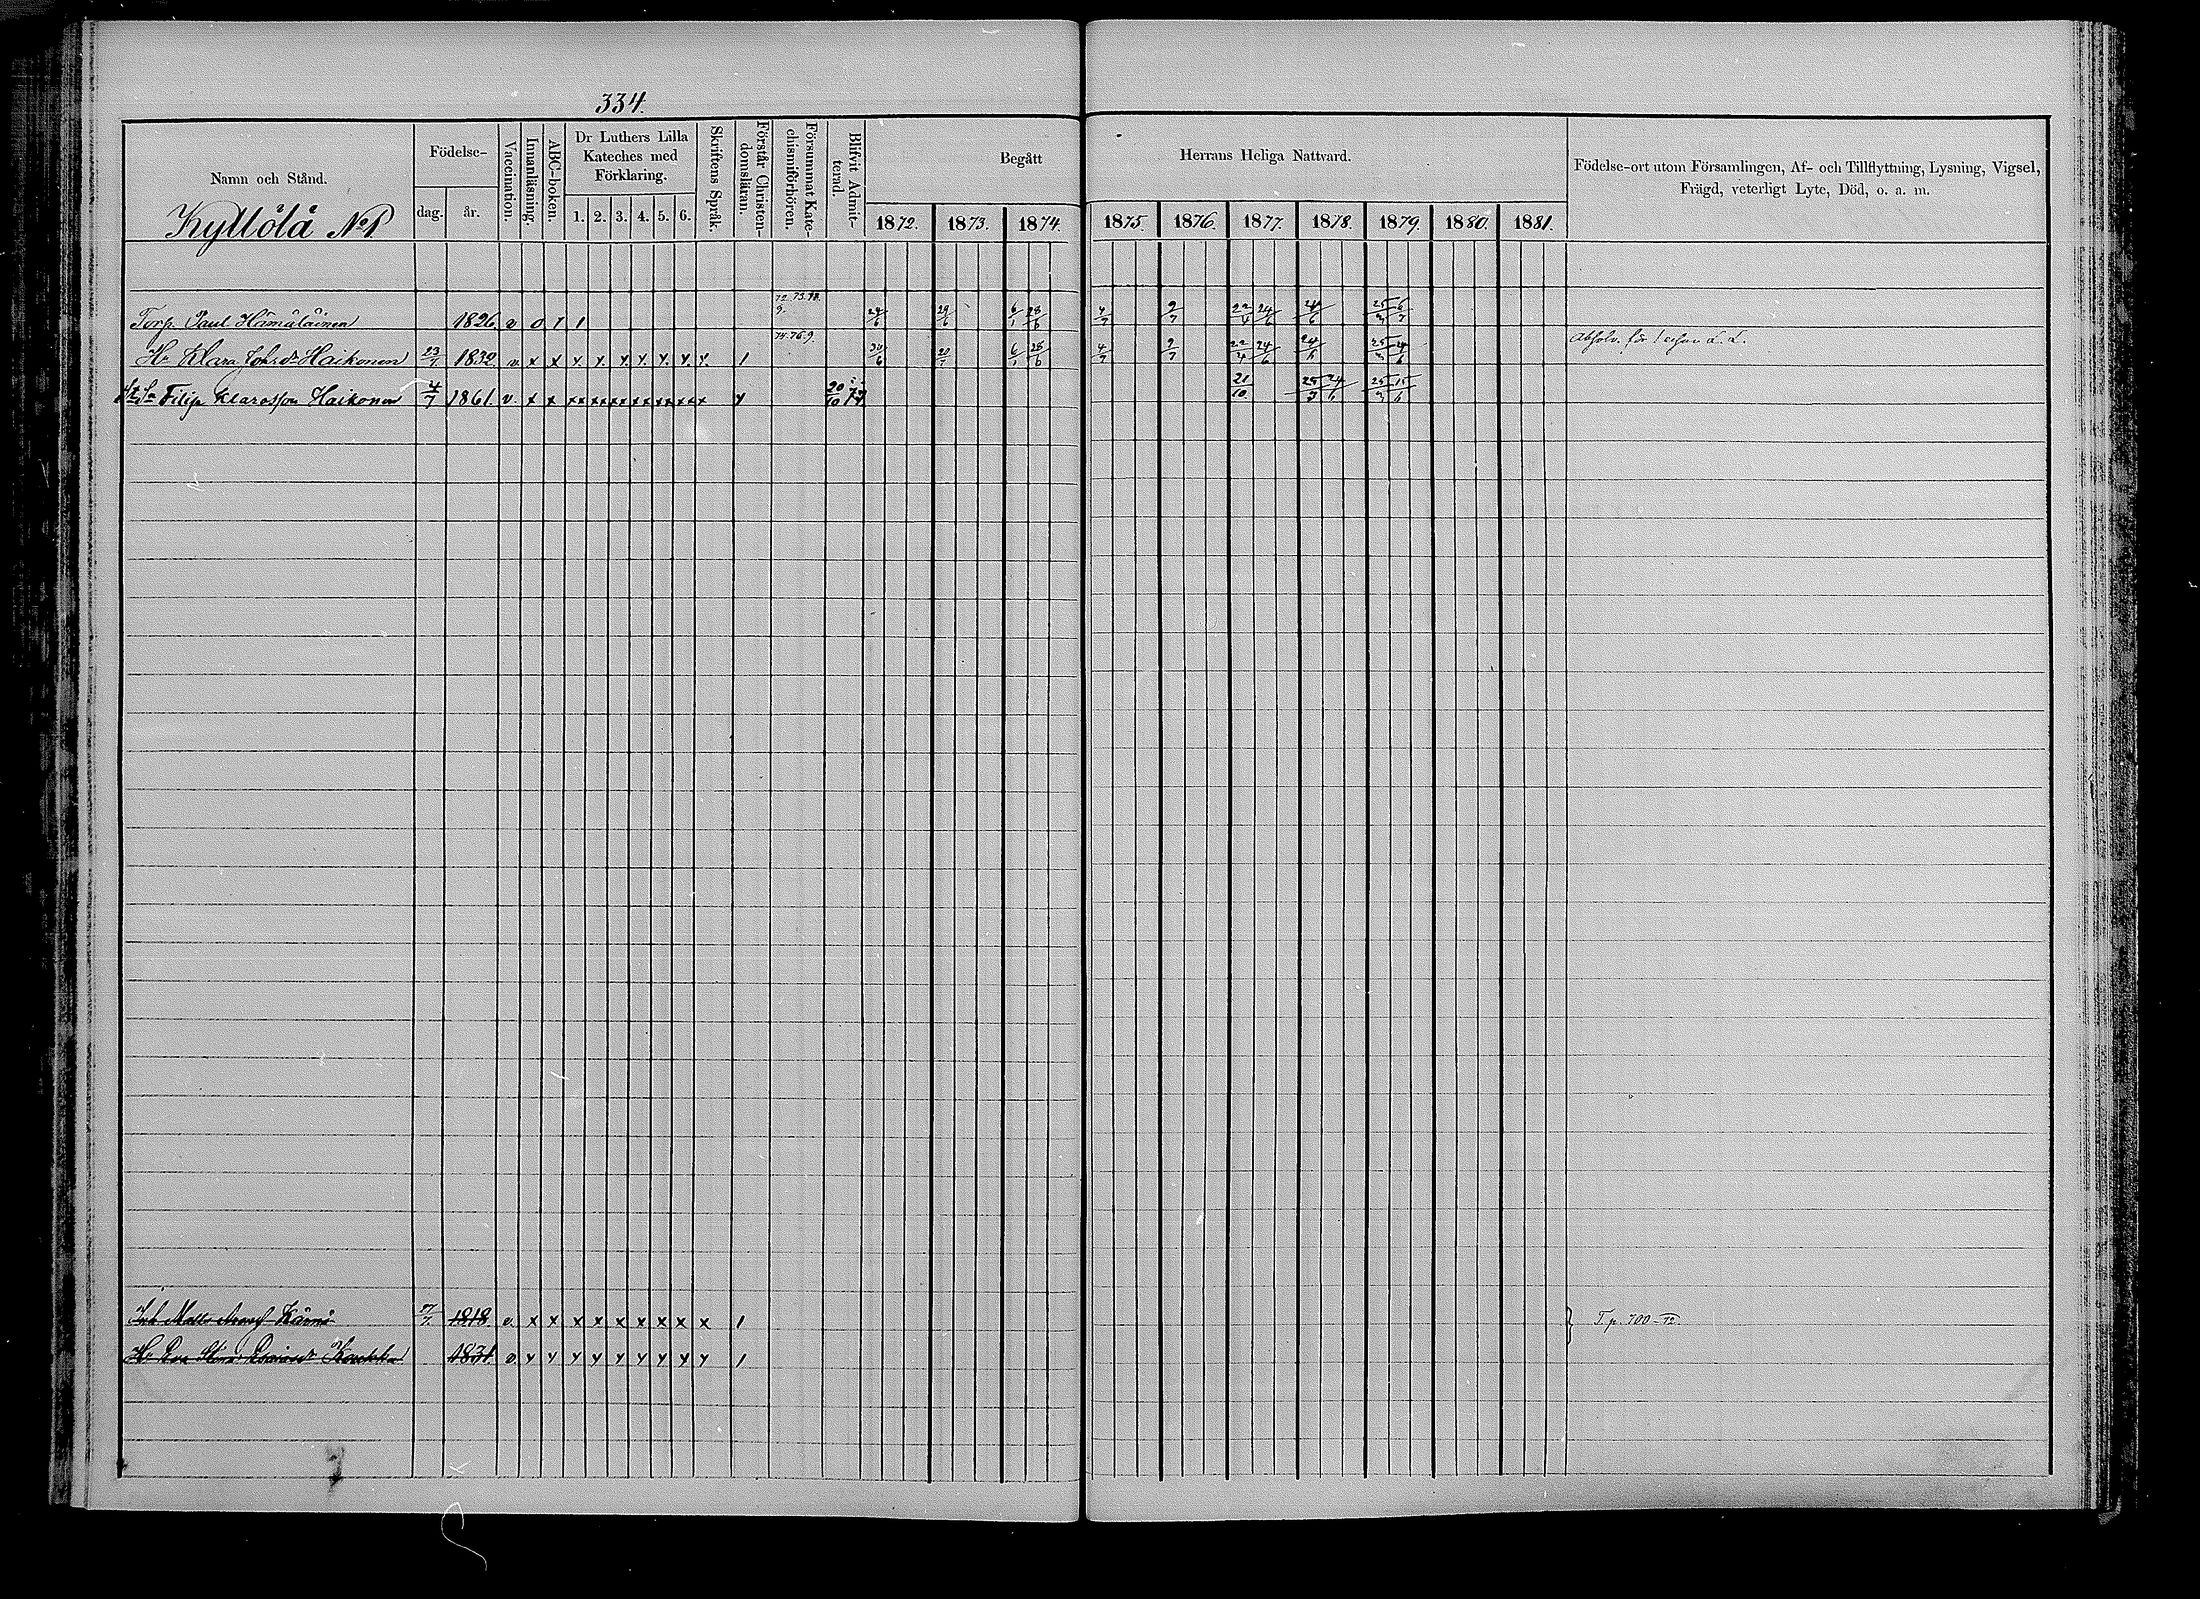 334.
Namn och Stånd.
Födelse-
dag. år.
Vaccination.
Innanläsning.
ABC-boken.
Dr Luthers Lilla
Kateches med
Förklaring.
1. 2. 3. 4. 5. 6.
Skriftens Språk.
Förstår Christen-
domsläran.
Försummat Kate-
chismiförhören.
Blifvit Admit-
terad.
Begått
Herrans Heliga Nattvard.
1872. 1873. 1874. 1875. 1876. 1877. 1878. 1879. 1880. 1881.
Födelse-ort utom Församlingen, Af- och Tillflyttning, Lysning, Vigsel,
Frägd, veterligt Lyte, Död, o. a. m.
Kyllölä No 1
Torp. Paul Hämäläinen 1826. v 0 1 1 24/6 29/6 6/1 28/6 4/7 9/7 22/4 24/6 24/6 25/3 6/7
Hu Klara Haikonen 23/7 1832. v. x x y. y. y. y. y. y. y. 1 30/6 6/1 28/6 4/7 9/7 22/4 24/6 24/6 25/3 24/6
Absolv. för 1
Filip Klarasson Haikonen 4/7 1861. v. x x xx xx xx xx xx xx x y 20/10 77 21/10 25/3 24/6 25/3 15/6
Matts Kärnä 1818. v. x x x x x x x x x 1
T. p. 700-72.
Hu Eva 1831 v. y y y y y y y y y 1